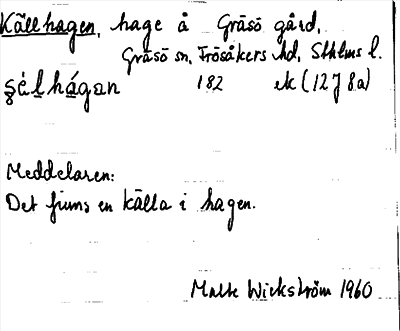 Källhagen, hage å Gräsö gård,
Gräsö sn, Frösåkers hd, Sthlms l.
ʂél̮hágan 182 ek (12J8a)
Meddelaren:
Det finns en källa i hagen.
Malte Wickström 1960